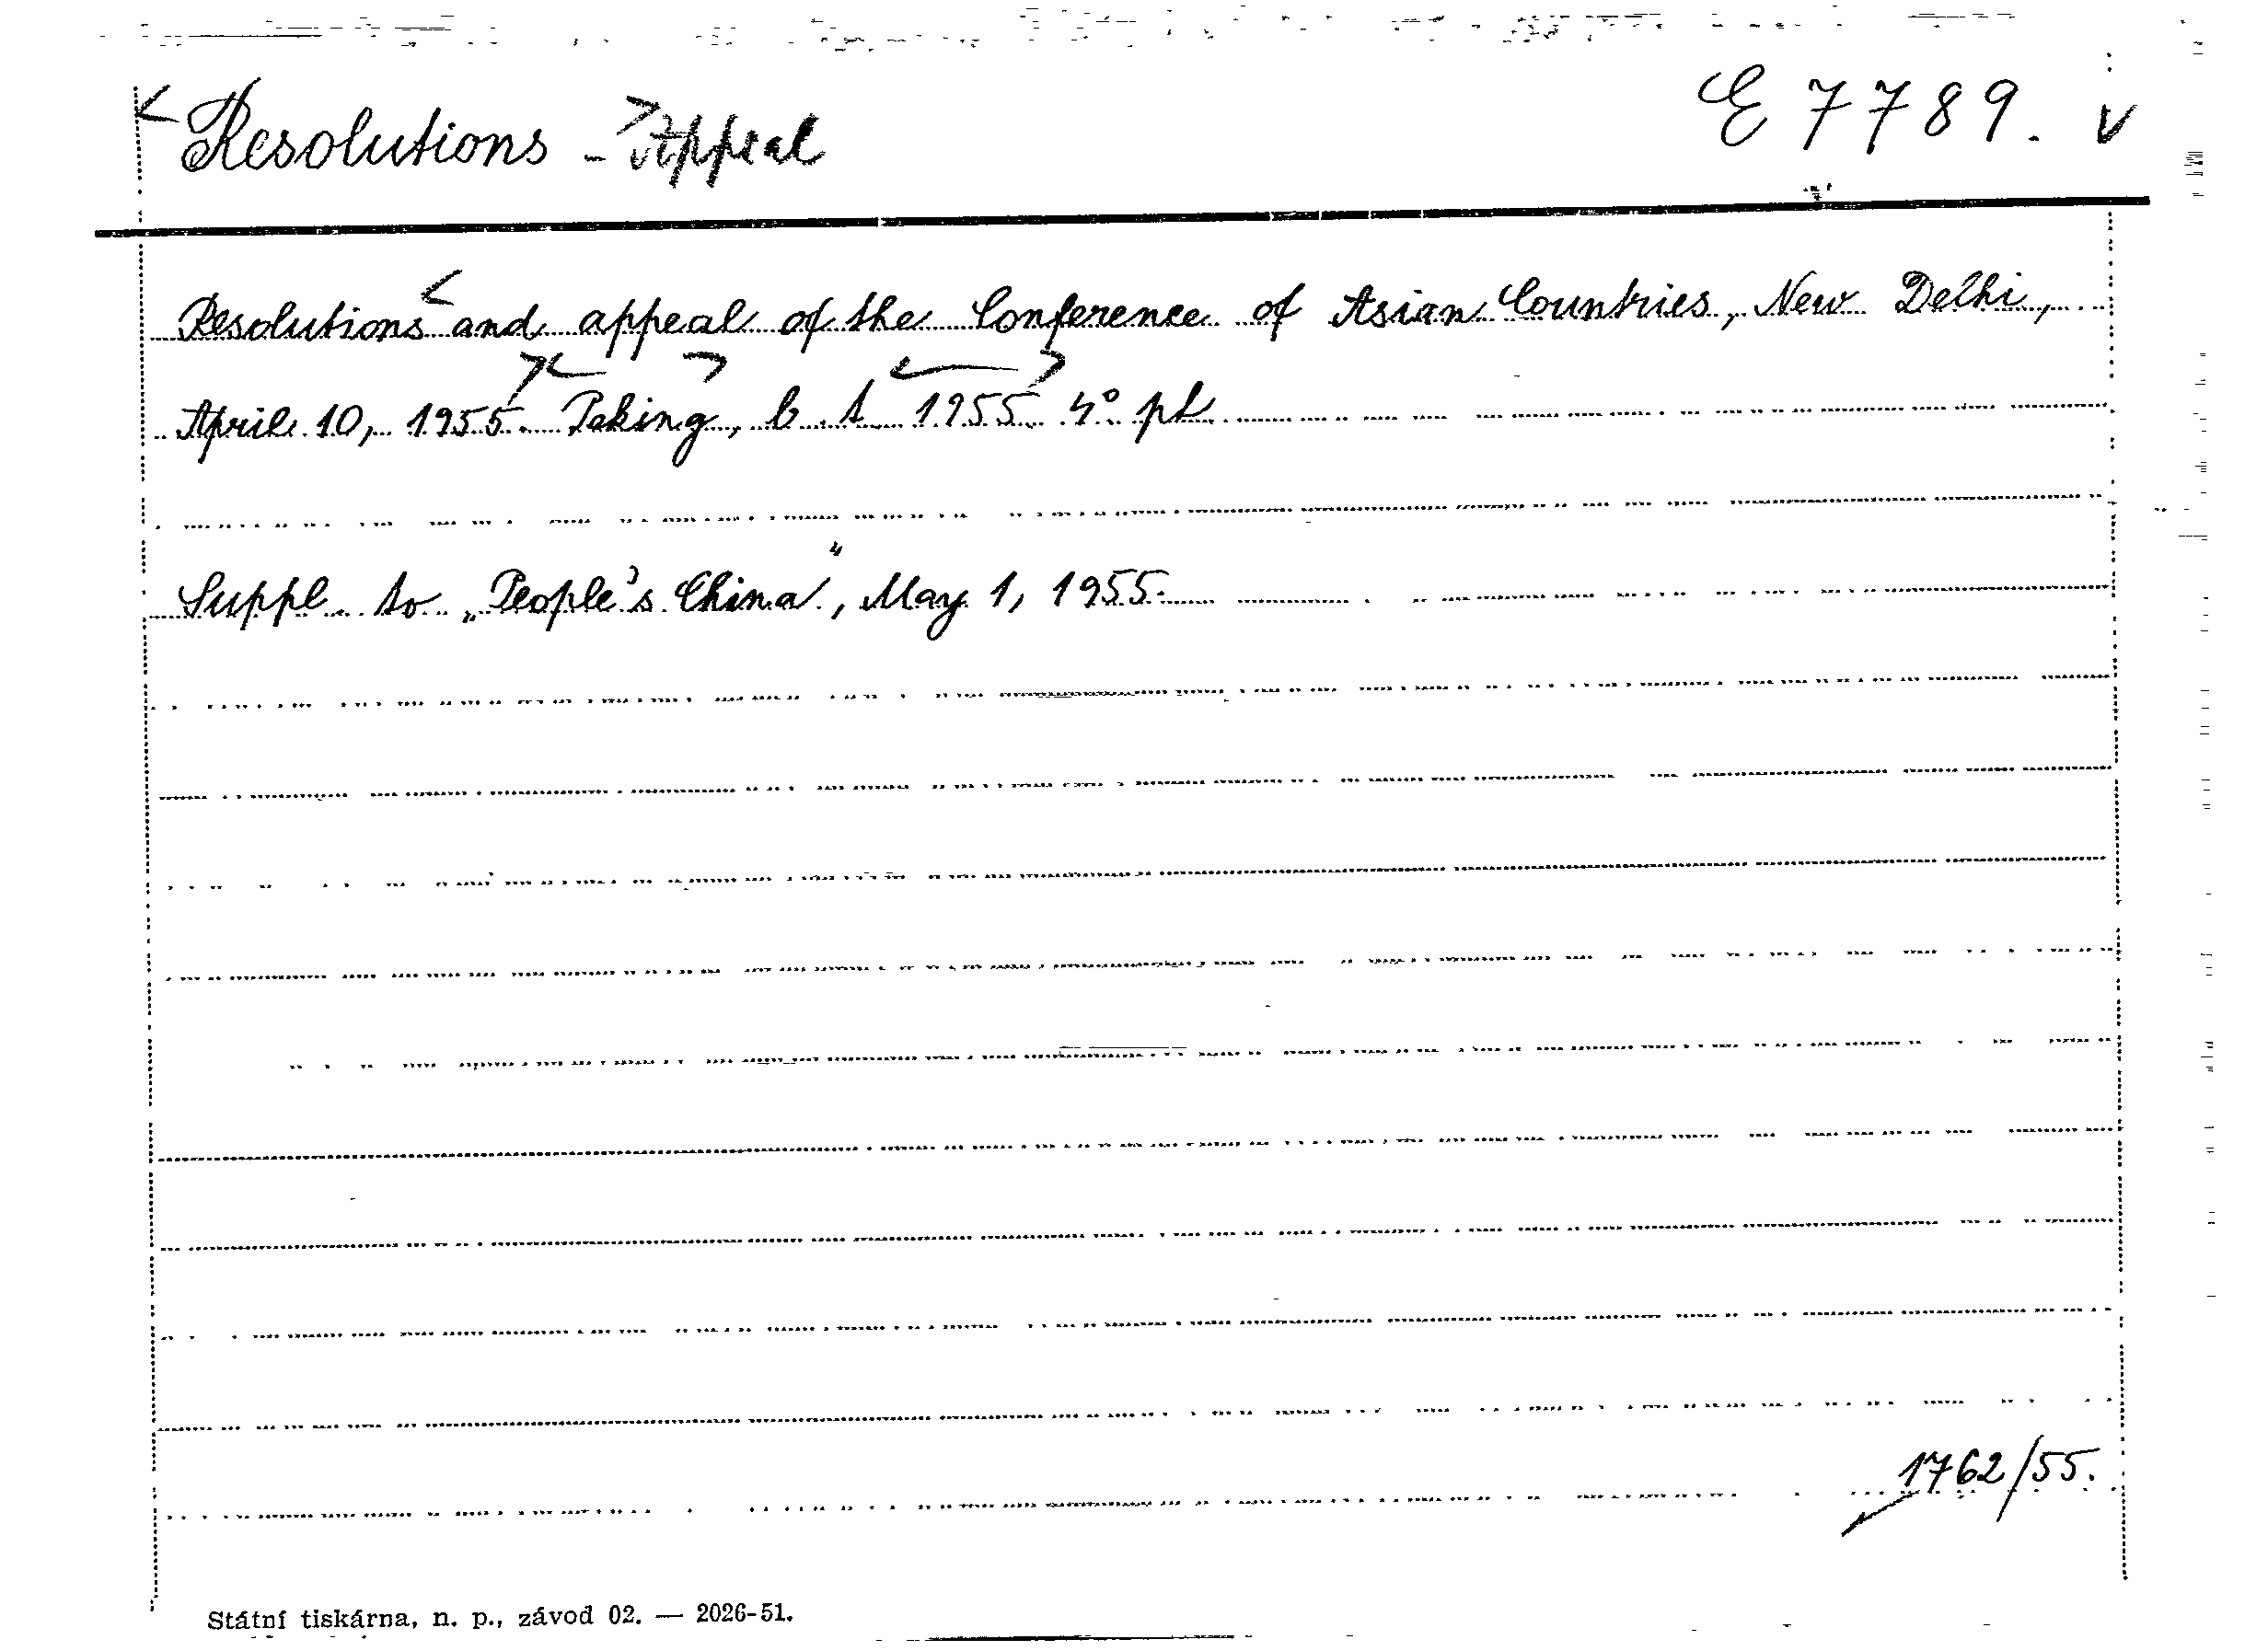 Resolutions - Appeal E 7789. v
Resolutions and appeal of the Conference of Asian Countries, New Delhi,
April 10, 1955. Peking, b. t. 1955. 4° pt.
Suppl. to „People's China“, May 1, 1955.
1762/55.
Státní tiskárna, n. p., závod 02. — 2026-51.